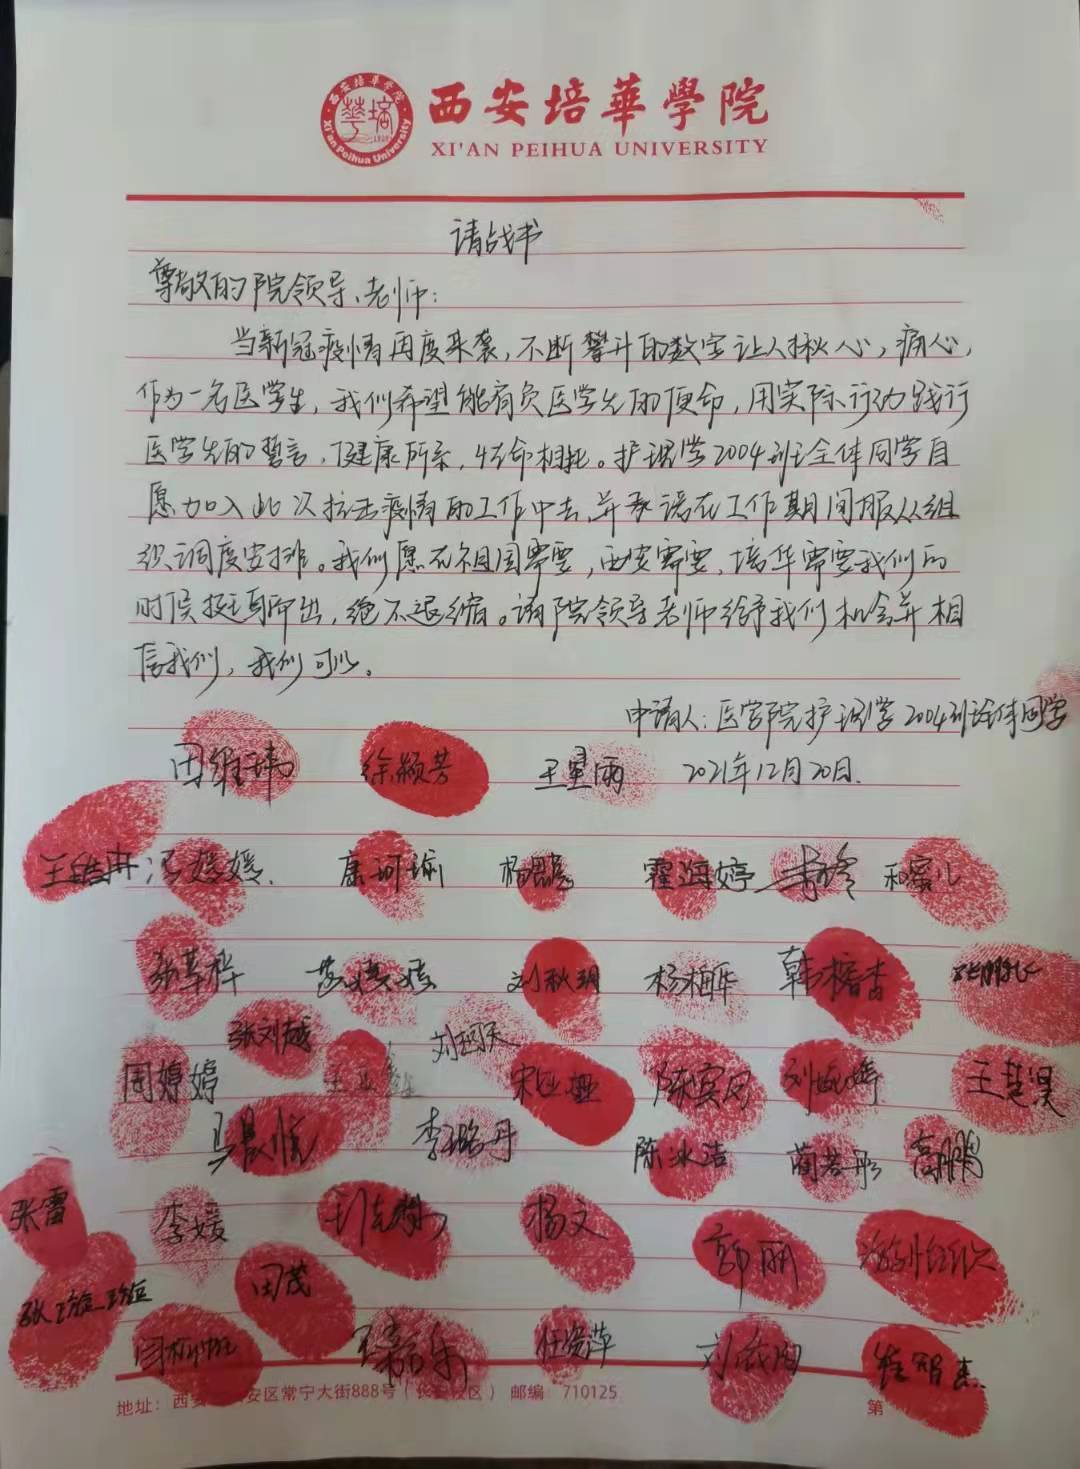 西安培華學院
XI'AN PEIHUA UNIVERSITY
西安培华学院
Xi'an Peihua University
请战书
尊敬的院领导、老师:
当新冠疫情再度来袭,不断攀升的数字让人揪心,痛心,
作为一名医学生,我们希望能肩负医学生的使命,用实际行动践行
医学生的誓言,健康所系,性命相托。护理学2004班全体同学自
愿加入此次抗击疫情的工作中去,并承诺在工作期间服从组
织调度安排。我们愿在祖国需要,西安需要,培华需要我们的
时候挺身而出,绝不退缩。请院领导老师给予我们机会并相
信我们,我们可以。
申请人:医学院护理学2004班全体同学
田维玮 徐颖芳 王星雨 2021年12月20日.
冯媛媛. 康珂瑜 霍海婷
张莘桦 刘秋玥 杨梅华 韩榕杏
张刘越
周婷婷 陈宾凤 王楚淏
马晨悦 李璐丹 陈冰洁 蔺若彤 高鹏
张雷 李媛 杨文 郭丽
田茂
任资萍 刘依雨 崔智杰.
地址:西安 安区常宁大街888号(长安校区) 邮编 710125
第